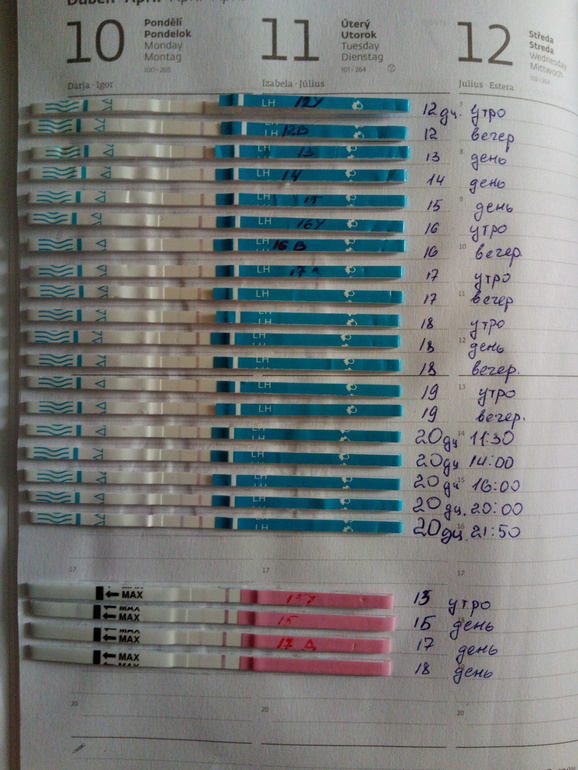 Duben · April · April · Apríl
10
Pondělí
Pondelok
Monday
Montag
100 - 265
Darja · Igor
11
Úterý
Utorok
Tuesday
Dienstag
101 - 264
Izabela · Július
12
Středa
Streda
Wednesday
Mittwoch
Julius · Estera
LH 12У 12дц. утро
LH 12В 12 вечер
LH 13 13 день
LH 14 14 день
LH 15 15 день
LH 16У 16 утро
LH 16 В 16 вечер
LH 17 17 утро
LH 17 вечер
LH 18 утро
LH 18 день
LH 18 вечер.
LH 19 утро
LH 19 вечер.
LH 20дц 11:30
LH 20дц 14:00
LH 20дц 16:00
LH 20дц. 20:00
LH 20дц. 21:50
17 17 17
MAX 13 утро
MAX 15 15 день
MAX 17 Д 17 день
MAX 18 день
20 20 20